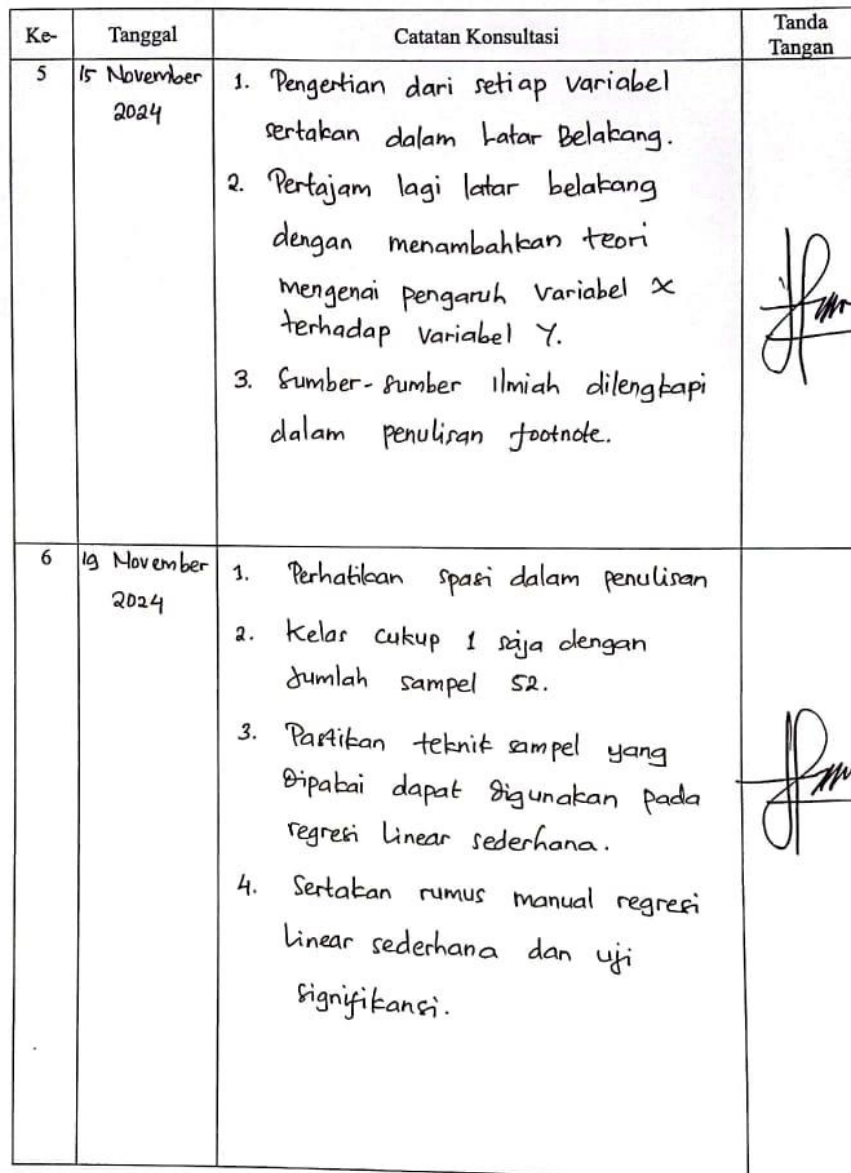 Ke- Tanggal Catatan Konsultasi Tanda
Tangan
5 15 November 1. Pengertian dari setiap variabel
2024 sertakan dalam Latar Belakang.
2. Pertajam lagi latar belakang
dengan menambahkan teori
mengenai pengaruh variabel X
terhadap variabel Y.
3. Sumber-sumber Ilmiah dilengkapi
dalam penulisan footnote.
6 19 November 1. Perhatikan spasi dalam penulisan
2024
2. Kelas cukup 1 saja dengan
Jumlah sampel 52.
3. Pastikan teknik sampel yang
dipakai dapat digunakan pada
regresi Linear sederhana.
4. Sertakan rumus manual regresi
Linear sederhana dan uji
signifikansi.